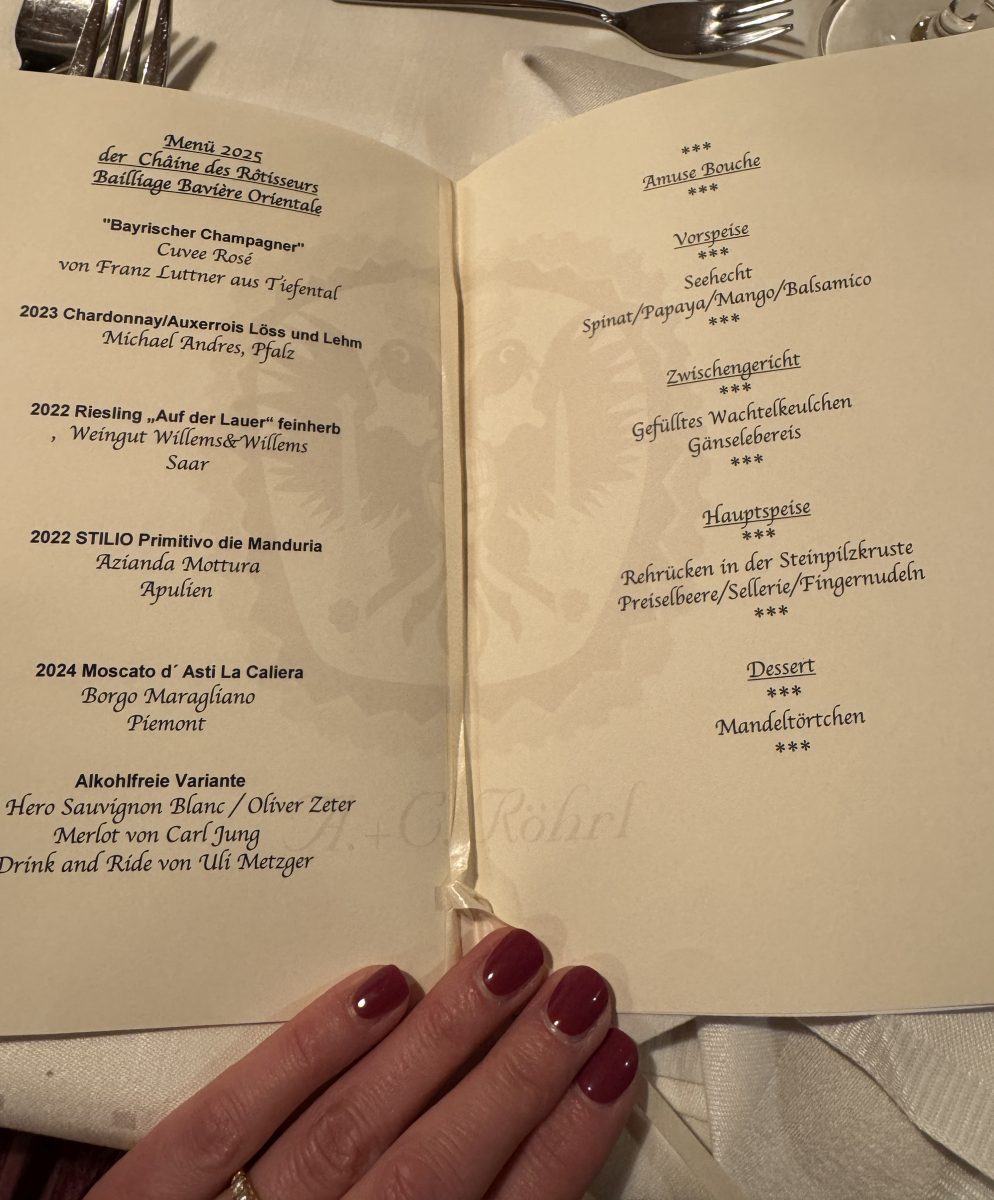 Menü 2025
der Châine des Rôtisseurs
Bailliage Bavière Orientale
"Bayrischer Champagner"
Cuvee Rosé
von Franz Luttner aus Tiefental
2023 Chardonnay/Auxerrois Löss und Lehm
Michael Andres, Pfalz
2022 Riesling „Auf der Lauer“ feinherb
, Weingut Willems&Willems
Saar
2022 STILIO Primitivo die Manduria
Azianda Mottura
Apulien
2024 Moscato d´ Asti La Caliera
Borgo Maragliano
Piemont
Alkohlfreie Variante
Hero Sauvignon Blanc / Oliver Zeter
Merlot von Carl Jung
Drink and Ride von Uli Metzger
***
Amuse Bouche
***
Vorspeise
***
Seehecht
Spinat/Papaya/Mango/Balsamico
***
Zwischengericht
***
Gefülltes Wachtelkeulchen
Gänselebereis
***
Hauptspeise
***
Rehrücken in der Steinpilzkruste
Preiselbeere/Sellerie/Fingernudeln
***
Dessert
***
Mandeltörtchen
***
A.+C. Röhrl